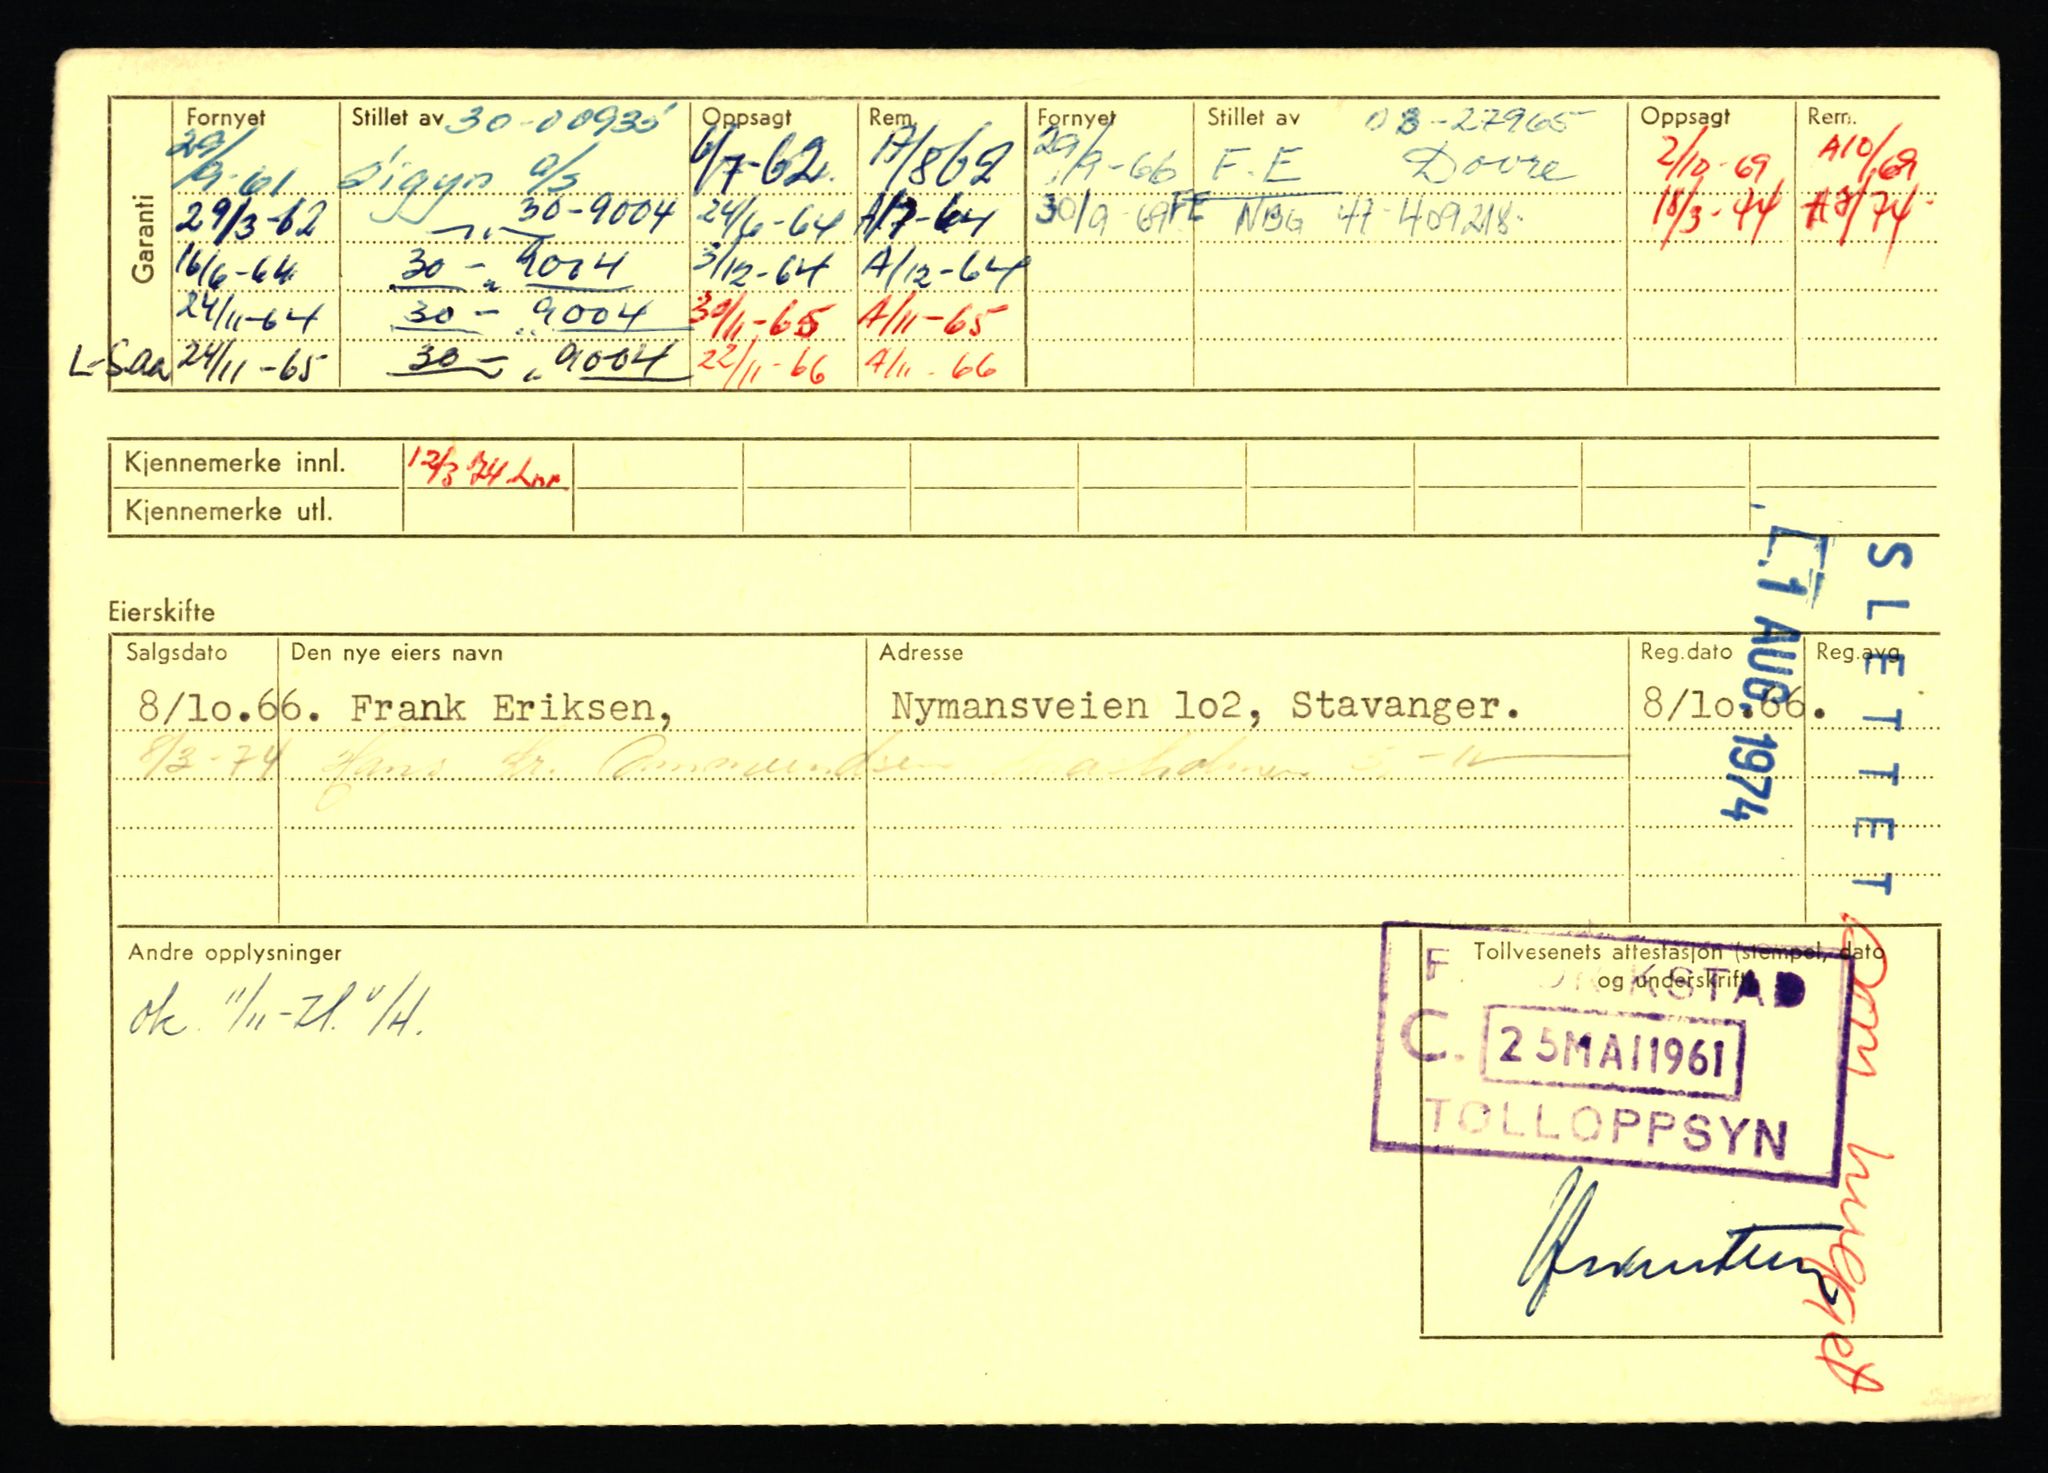 Garanti
Fornyet Stillet av 30-00935 Oppsagt Rem. Fornyet Stillet av 08-27965 Oppsagt Rem.
29/9-61 Sigyn a/s 6/7-62. A/8 62 29/9-66 F.E Dovre 2/10-69 A10/69
29/3-62 -"- 30-9004 24/6-64 A/7-64 30/9-69 FE NBG 47-409218 18/3-74 A7/74
16/6-64 30 - " 9004 3/12-64 A/12-64
24/11-64 30 - " 9004 30/11-65 A/11-65
L-Saa 24/11-65 30 - " 9004 22/11-66 A/11-66
Kjennemerke innl. 12/3 74
Kjennemerke utl.
SLETTET
1 AUG. 1974
Eierskifte
Salgsdato Den nye eiers navn Adresse Reg.dato Reg.avg
8/1o.66. Frank Eriksen, Nymansveien 1o2, Stavanger. 8/1o.66.
8/3-74 Hans Kr. Ommundsen
Andre opplysninger
ok 11/11-71.
Tollvesenets attestasjon (stempel, dato
og underskrift)
FREDRIKSTAD
C. 25 MAI 1961
TOLLOPPSYN